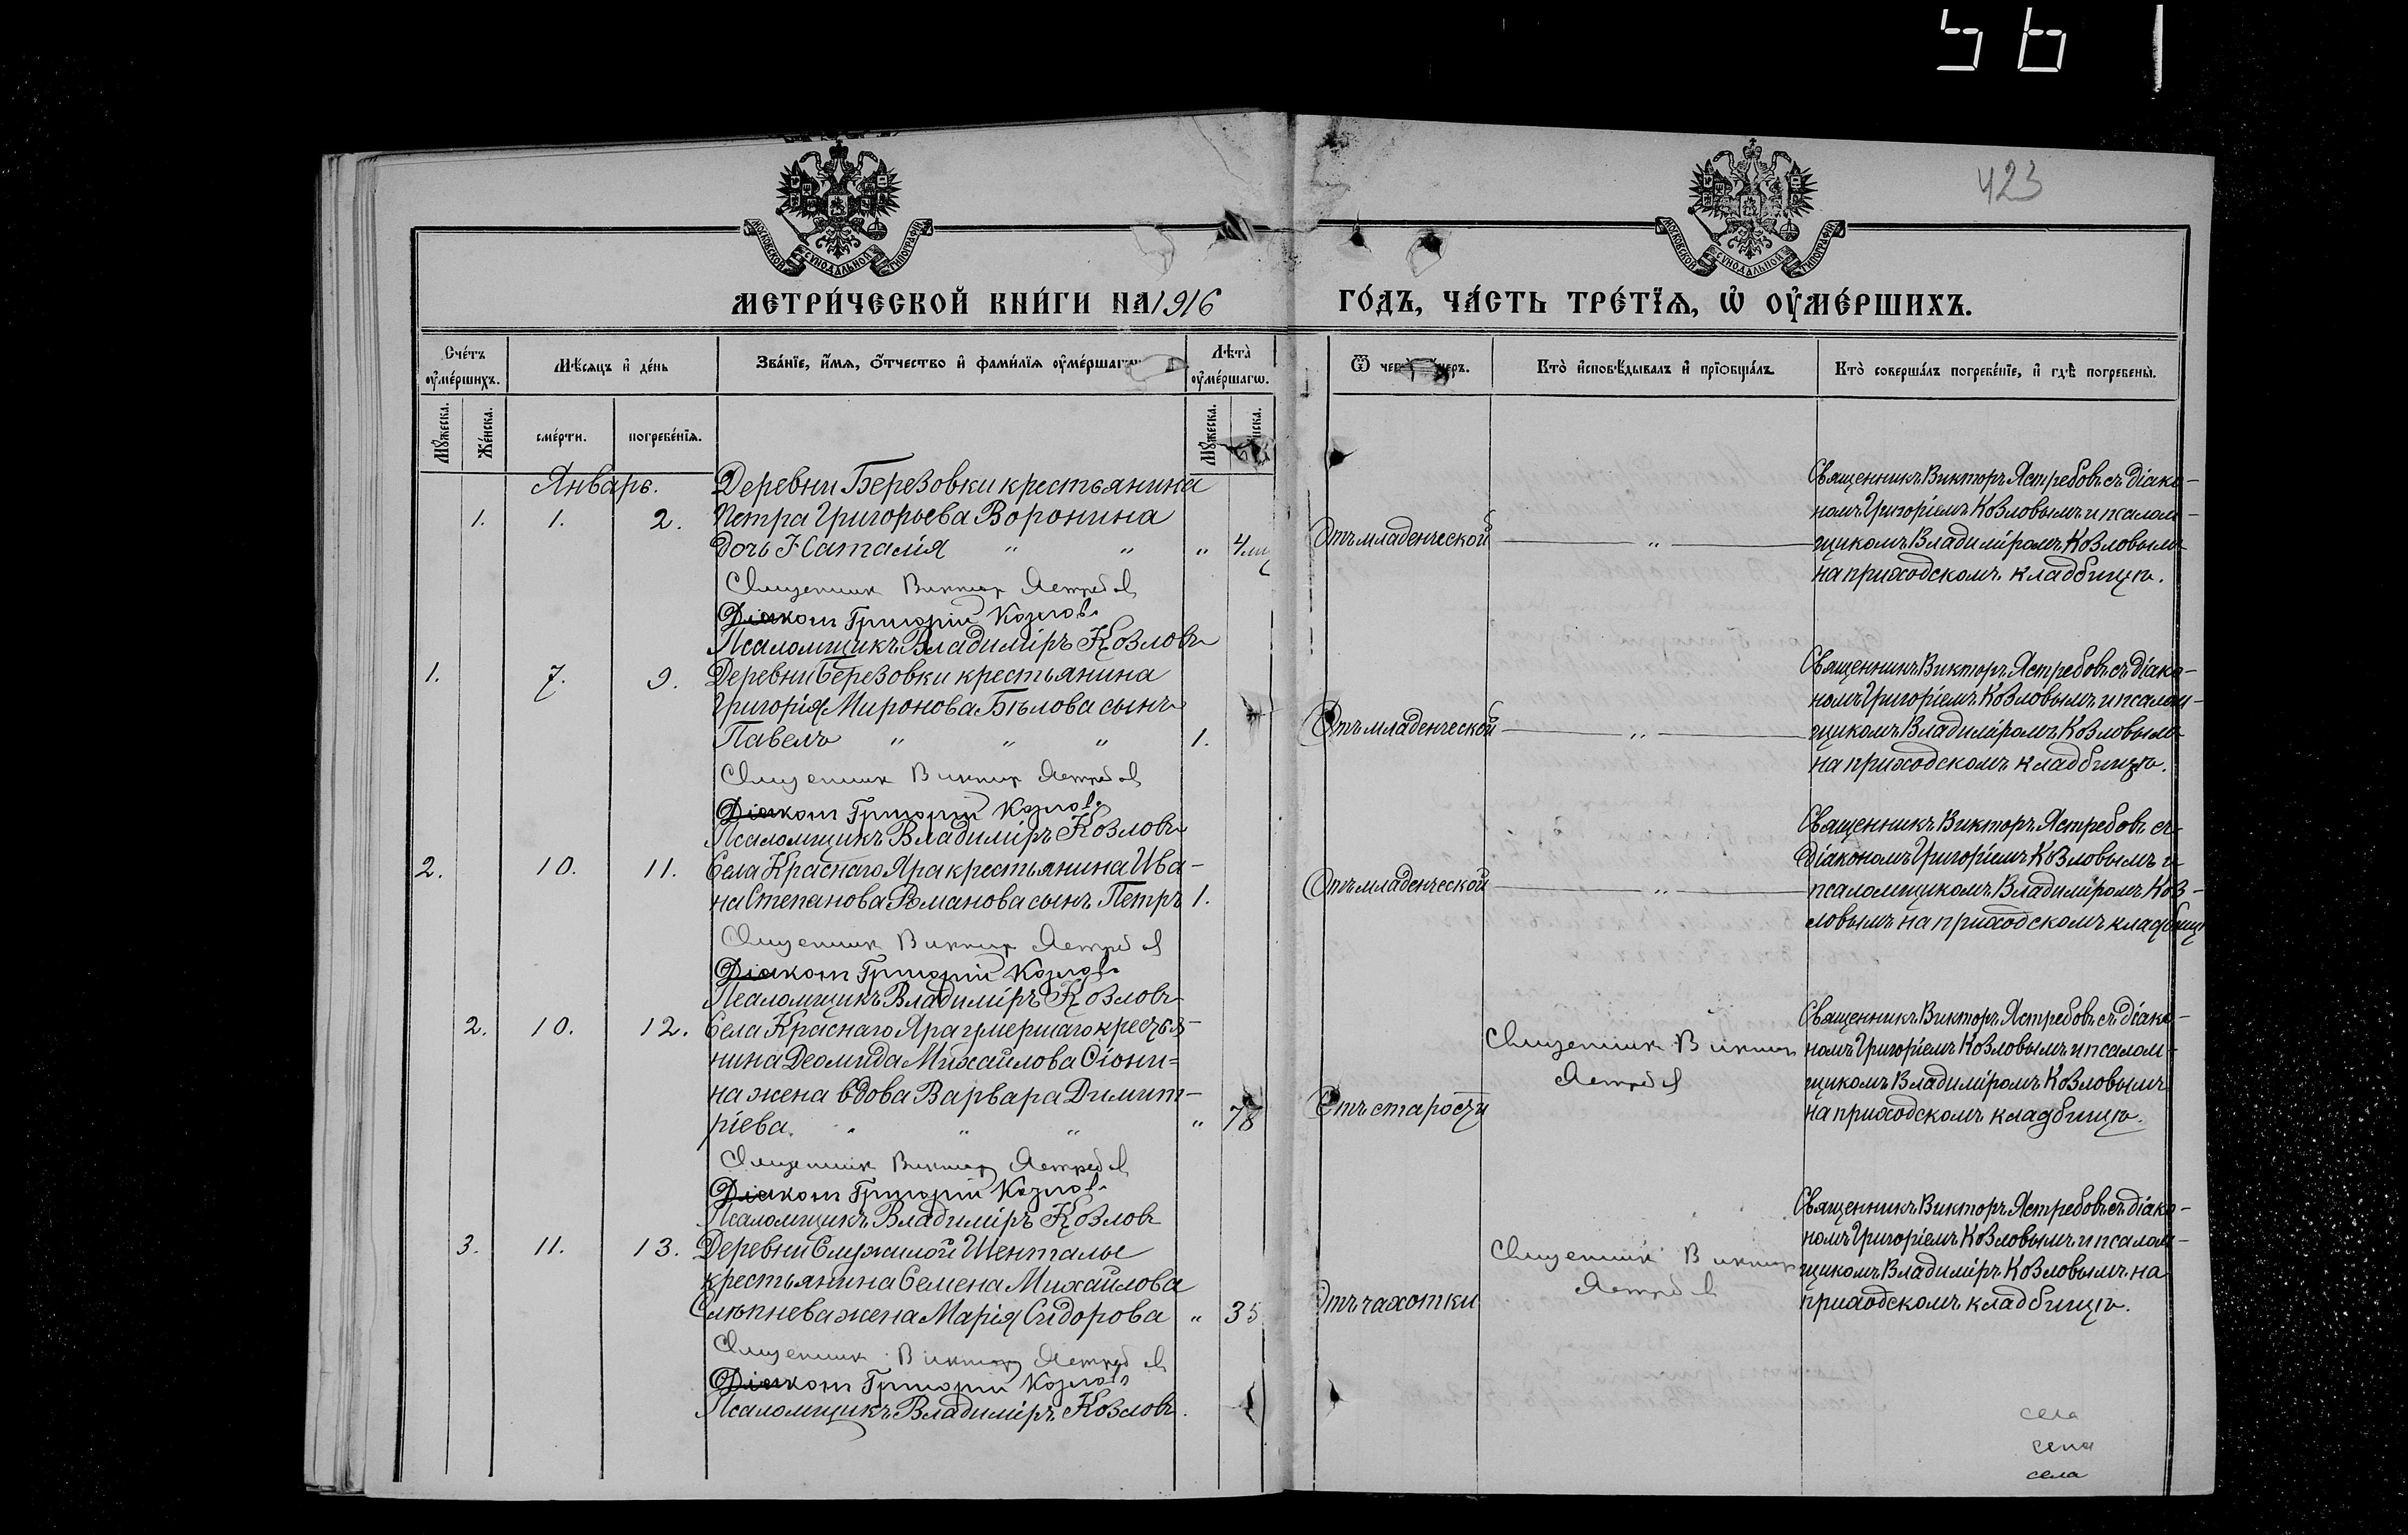 561
423
МОСКОВСКОЙ СѴНОДАЛЬНОЙ ТИПОГРАФІИ
МОСКОВСКОЙ СѴНОДАЛЬНОЙ ТИПОГРАФІИ
МЕТРИ́ЧЕСКОЙ КНИ́ГИ НА 1916 ГО́ДЪ, ЧА́СТЬ ТРЕ́ТЇЯ, Ѡ҆ ОУ҆МЕ́РШИХЪ.
Сче́тъ оу҆ме́ршихъ.
Мѣ́сяцъ и҆ де́нь
Зва́нїе, и҆́мя, о҆́тчество и҆ фами́лїя оу҆ме́ршаго
Лѣ́та оу҆ме́ршагѡ.
Ѿ чегѡ̀ ме́ръ.
Кто̀ и҆сповѣ́дывалъ и҆ прїѡбща́лъ.
Кто̀ соверша́лъ погребе́нїе, и҆ гдѣ̀ погребены̀.
Мꙋ́жеска.
Же́нска.
сме́рти.
погребе́нїя.
Мꙋ́жеска.
нска.
Январь.
Деревни Березовки крестьянина
1. 1. 2. Петра Григорьева Воронина
дочь Наталія " " " 4
Священник Виктор Ястребов
Діакон Григорій Козлов
Псаломщикъ Владиміръ Козловъ
Отъ младенческой "
Священникъ Викторъ Ястребовъ съ діако-
номъ Григоріемъ Козловымъ и псалом-
щикомъ Владиміромъ Козловымъ
на приходскомъ кладбищѣ.
1. 7. 9. Деревни Березовки крестьянина
Григорія Миронова Бѣлова сынъ
Павелъ " " " 1.
Священник Виктор Ястребов
Діакон Григорій Козлов
Псаломщикъ Владиміръ Козловъ
Отъ младенческой "
Священникъ Викторъ Ястребовъ съ діако-
номъ Григоріемъ Козловымъ и псалом-
щикомъ Владиміромъ Козловымъ
на приходскомъ кладбищѣ.
2. 10. 11. Села Краснаго Яра крестьянина Ива-
на Степанова Романова сынъ Петръ 1.
Священник Виктор Ястребов
Діакон Григорій Козлов
Псаломщикъ Владиміръ Козловъ
Отъ младенческой "
Священникъ Викторъ Ястребовъ съ
діакономъ Григоріемъ Козловымъ и
псаломщикомъ Владиміромъ Коз-
ловымъ на приходскомъ кладбищ
2. 10. 12. Села Краснаго Яра умершаго крестья-
нина Деомида Михайлова Сіони=
на жена вдова Варвара Димит-
ріева. " " " " 78
Священник Виктор Ястребов
Діакон Григорій Козлов
Псаломщикъ Владиміръ Козловъ
Отъ старости
Священник Виктор
Ястребов
Священникъ Викторъ Ястребовъ съ діако-
номъ Григоріемъ Козловымъ и псалом-
щикомъ Владиміромъ Козловымъ
на приходскомъ кладбищѣ.
3. 11. 13. Деревни Служилой Шенталы
крестьянина Семена Михайлова
Слѣпнева жена Марія Сидорова " 35
Священник Виктор Ястребов
Діакон Григорій Козлов
Псаломщикъ Владиміръ Козловъ.
Отъ чахотки
Священник Виктор
Ястребов
Священникъ Викторъ Ястребовъ съ діако-
номъ Григоріемъ Козловымъ и псалом-
щикомъ Владиміръ Козловымъ на
приходскомъ кладбищѣ.
села
села
села